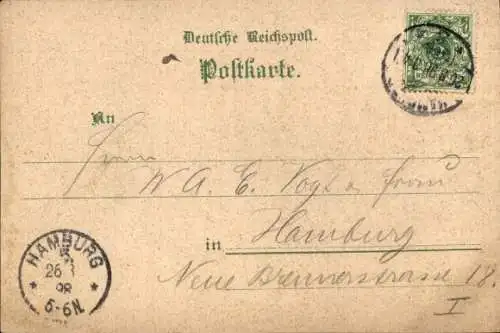 Deutsche Reichspost.
Postkarte.
An
Herrn
W. A. E. Vogt u Frau
in Hamburg
Neue Brennerstrasse 18.
I
HAMBURG
26
98
5-6N.